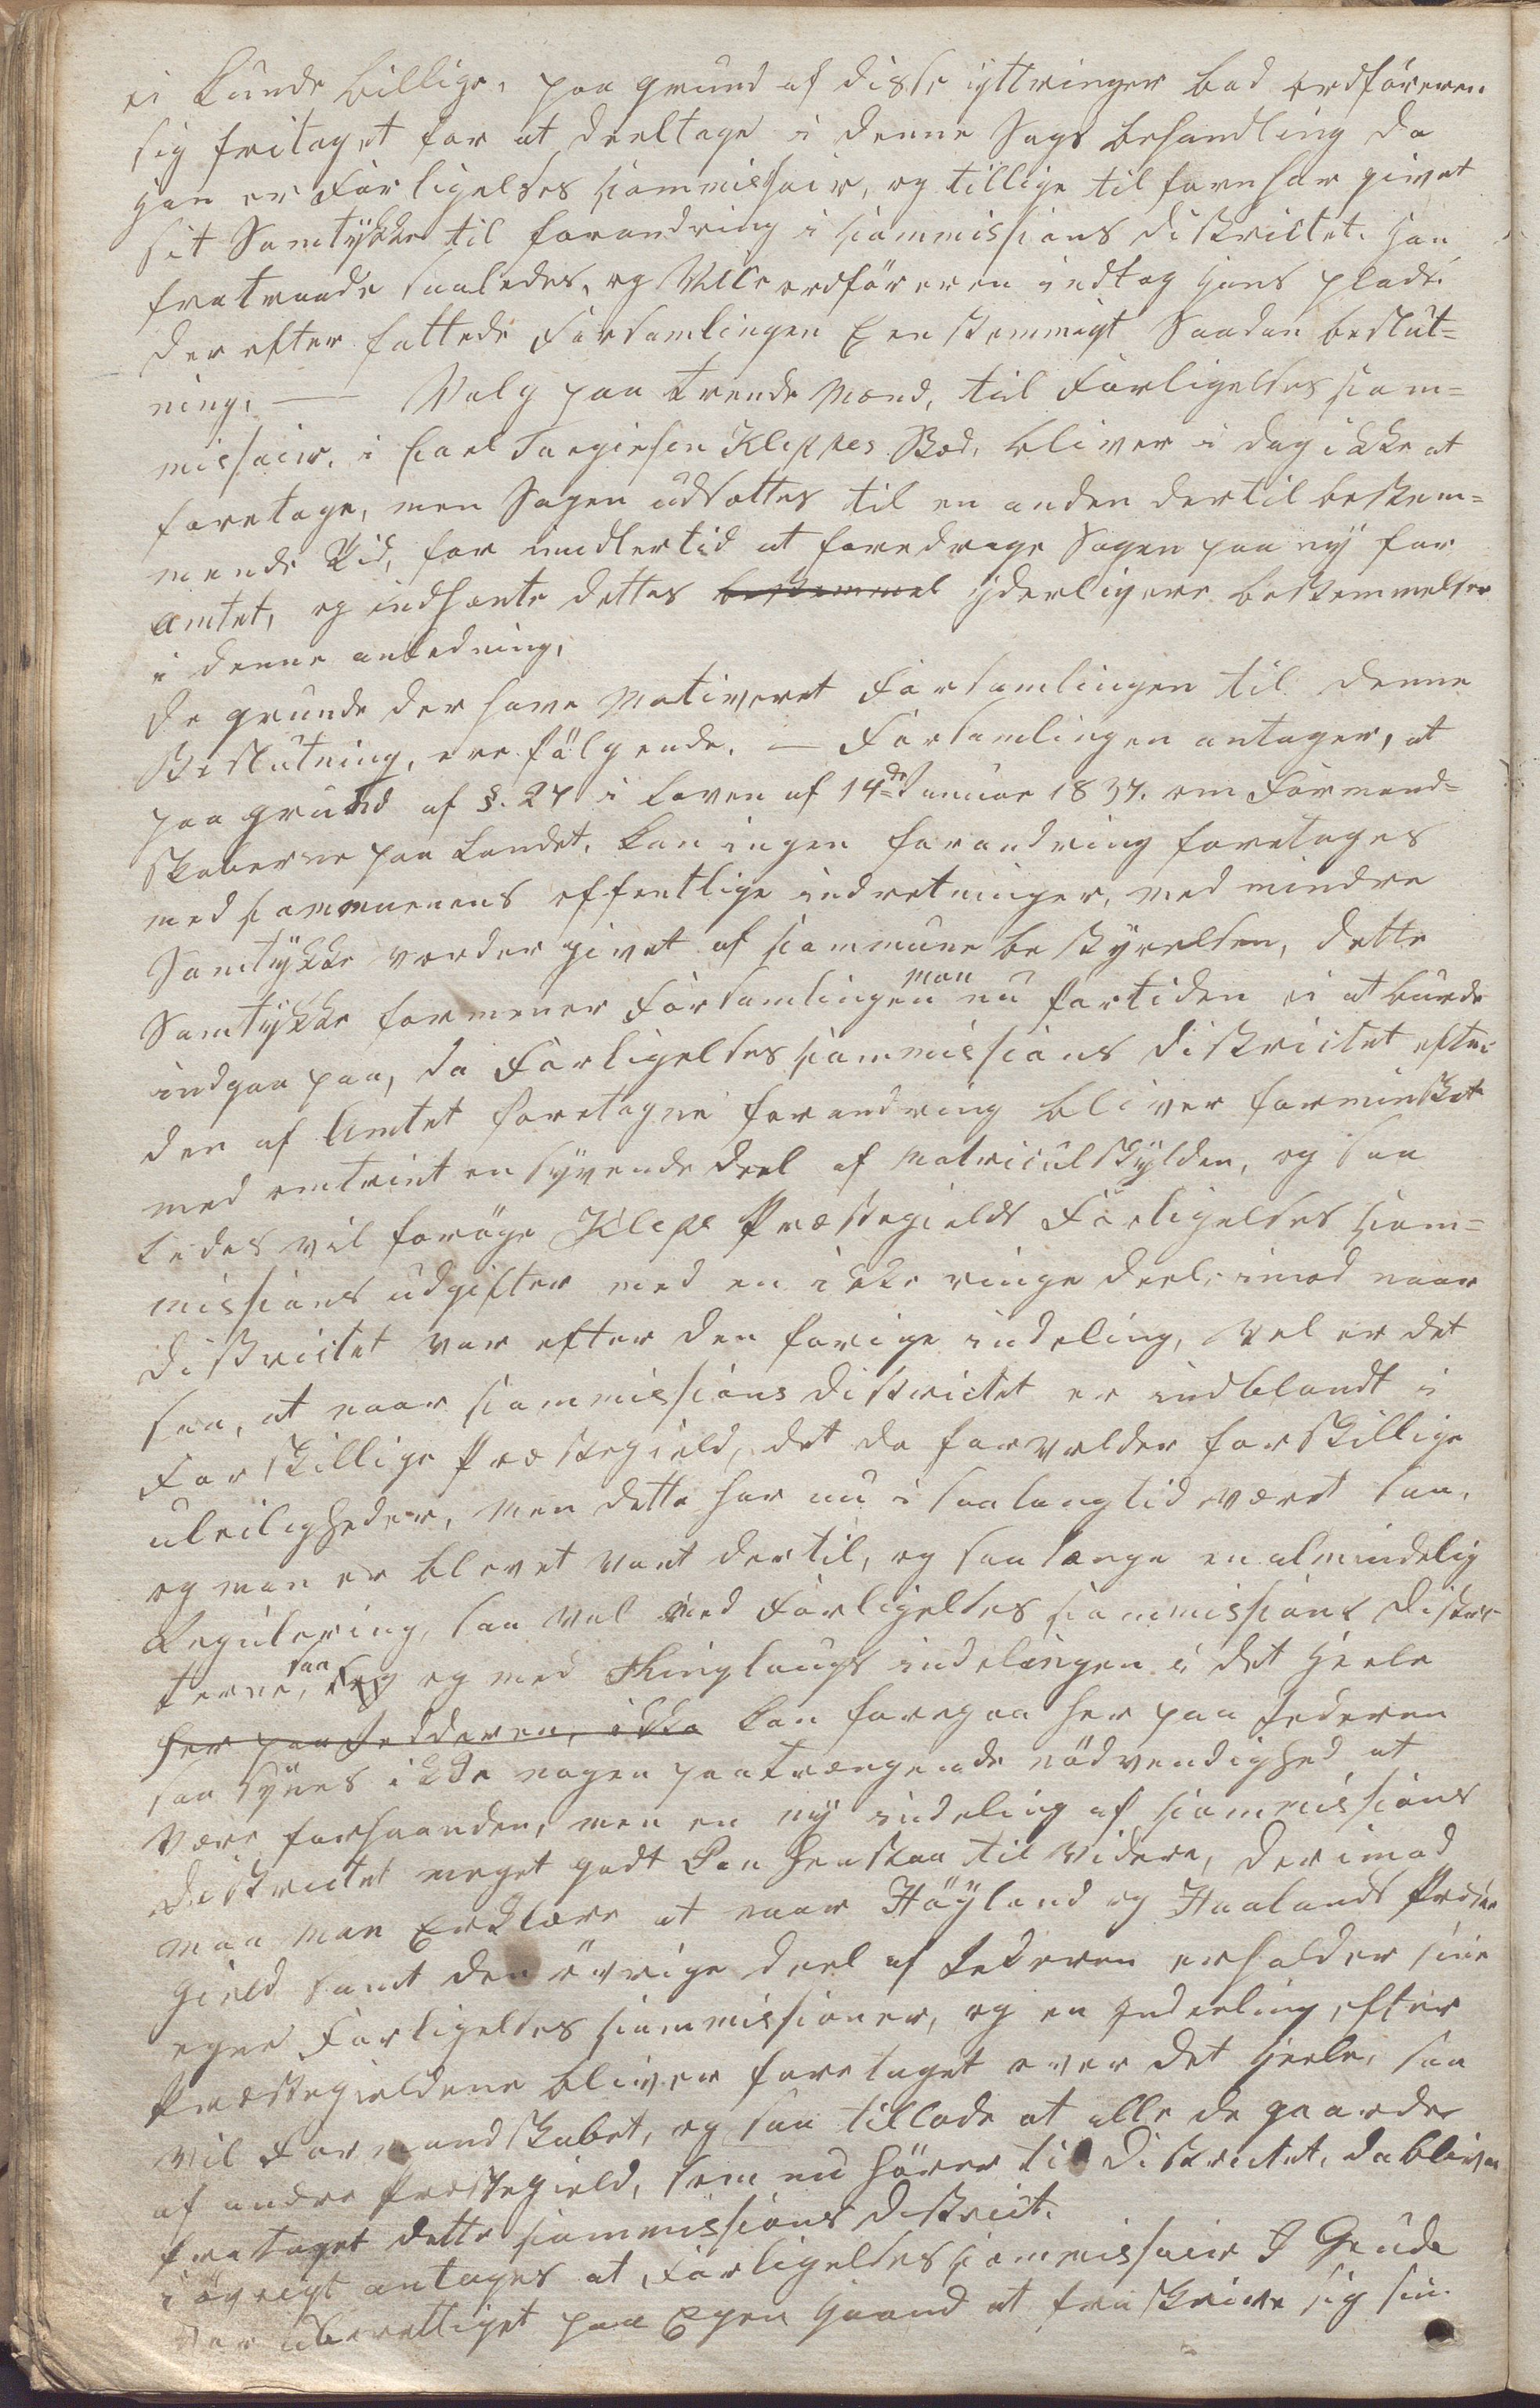 ei kunde billige, paa grund af disse yttringer bad ordföreren
sig fritaget for at deeltage i denne Sags behandling da
han er Forligelses Commissair, og tillige til forn har givet
sit Samtykke til forandring i Commissions districtet. Han
fratraade saaledes, og Vice ordföreren indtog hans plads.
der efter fattede Forsamlingen Eenstemmigt Saadan beslut-
ning: — Valg paa trende Mænd, til Forligelses Com-
missair, i Carl Torgiesen Kleppes Sted, bliver i dag ikke at
foretage, men Sagen udsættes til en anden dertil bestem-
mende Tid, for imidlertid at foredrage Sagen paa ny for
Amtet, og indhænte dettes bestemmel yderligere bestemmelser
i denne anledning.
De grunde der have Motiveret Forsamlingen til denne
Beslutning, ere fölgende. — Forsamlingen antager, at
paa grund af §. 27 i Loven af 14de Januar 1837. om Formand-
skaberne paa Landet, kan ingen forandring foretages
med Communens offentlige indretninger, med mindre
Samtykke vorder givet af Commune bestyrelsen, dette
Samtykke formener Forsamlingen man nu for tiden ei at burde
indgaa paa, da Forligelses Commissions districtet efter
den af Amtet foretagne forandring bliver forminsket
med omtrint en syvende deel af Matriculskylden, og saa
ledes vil foröge Klepe Præstegields Forligelses Com-
missions udgifter med en ikke ringe deel, imod naar
districtet var efter den forige indeling, Vel er det
saa, at naar Commissions districtet er indblandt i
Forskillige Præstegield, det da forvolder forskillige
uleiligheder, men dette har nu i saa lang tid været saa,
og man er blevet vant dertil, og saa længe en almindelig
Regulering, saa vel med Forligelses Commissions distric-
terne, saa og med Thinglaugs indelingen i det Heele
her paa Jedderen, ikke kan foregaa her paa Jederen
saa synes ikke nogen paatrængende nödvendighed at
være forhaanden, men en ny indeling af Commissions
Districtet meget godt kan henstaa til videre, derimod
maa man Erklære at naar Höyland og Haalands Præste
Gield samt den övrige deel af Jederen erholder sine
egne Forligelses Commissioner, og en Inddeeling efter
Præstegieldene bliver foretaget over det Heele, saa
vil Formandskabet, og saa tillade at alle de gaarder
af andre Præstegield, som nu hörer til Districtet, da bliver
fra taget dette Commissions District.
i övrigt antages at Forligelses Commissair J Grude
var uberettiget paa Egen Haand at fra skrive sig sin